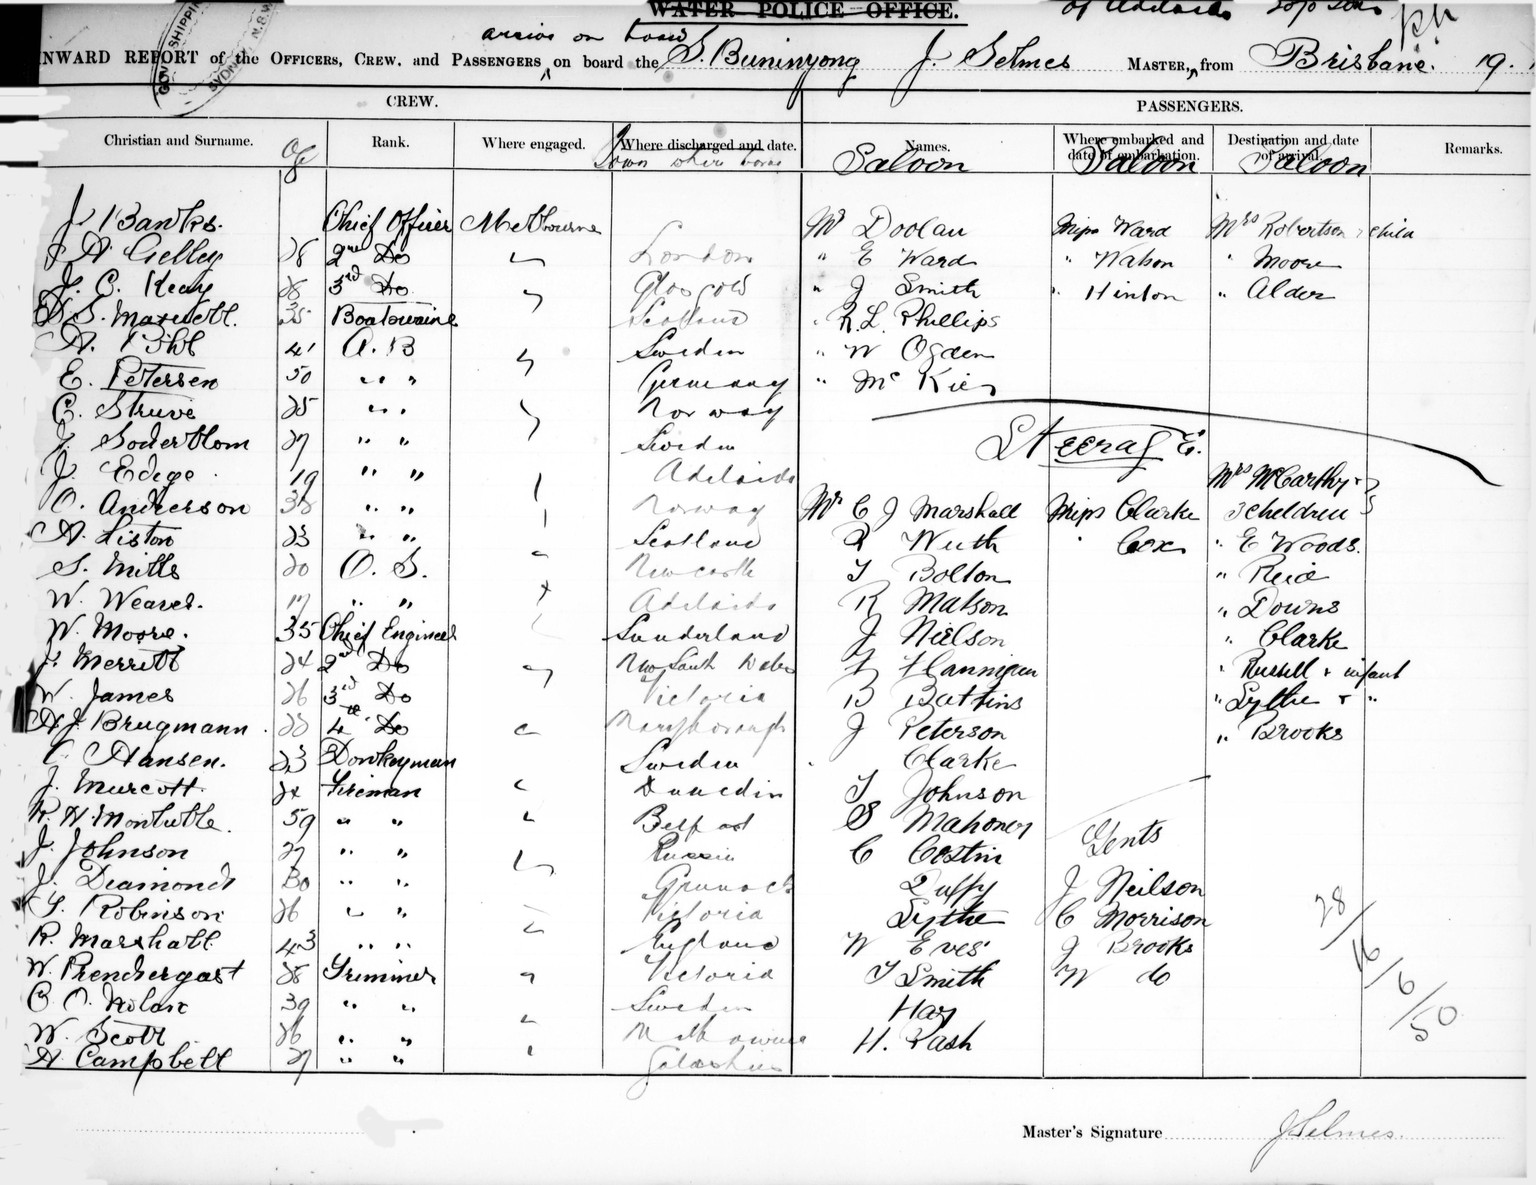 WATER POLICE OFFICE.
of Adelaide
INWARD REPORT of the OFFICERS, CREW, and PASSENGERS on board the S. Buninyong J. Selmes MASTER, from Brisbane. 19.
CREW. PASSENGERS.
Christian and Surname. Age Rank. Where engaged. Where discharged and date. Names. Where embarked and date of embarkation. Destination and date of arrival. Remarks.
Town where born Saloon Saloon Saloon
J. Banks. Chief Officer Melbourne Mr Doolan Miss Ward Mrs Robertson + child
28 2nd Do London " E Ward " Watson " Moore
J. C. Keay 28 3rd Do Glasgow " J Smith " Hinton " Alder
S. Maxwell. 35 Scotland " R. L. Phillips
A. 41 A. B Sweden " W Ogden
E. Petersen 50 " " Germany " Mc
C. Struve 25 " " Norway
J. Soderblom 27 " " Sweden Steerage.
J. Edge 19 " " Adelaide Mrs McCarthy +
O. Anderson 38 " " Norway Mr C J Marshall Miss Clarke 3 children
A. Liston 23 " " Scotland Weeth " Cox " E Woods.
S. Mills 20 O. S. Newcastle T Bolton " Reid
W. Weaver. 17 " " Adelaide R Matson " Downs
W. Moore. 35 Chief Engineer Sunderland J Nielson " Clarke
J. Merrett 24 2nd Do New South Wales Flannigan " Russell + infant
W. James 26 3rd Do Victoria B Battins " Sythe + "
A. J. Brugmann 4th Do Maryborough J Peterson " Brooks
C. Hansen. 23 Donkeyman Sweden Clarke
J. Murcott 24 Fireman Dunedin T Johnson
59 " " Belfast S Mahoney
J. Johnson 27 " " Russia C Costin Gents
J. Diamond 30 " " Greenock Duffy J Neilson
Robinson 26 " " Victoria Sythe C Morrison 28/16/6/50
R. Marshall 43 " " England W Eves J Brooks
W. Prendergast 28 Trimmer Victoria T Smith W do
C. O. Nolan 39 " " Sweden Hay
W. Scott 26 " " Melbourne H. Rash
A Campbell 27 " " Galashiels
Master's Signature J Selmes.